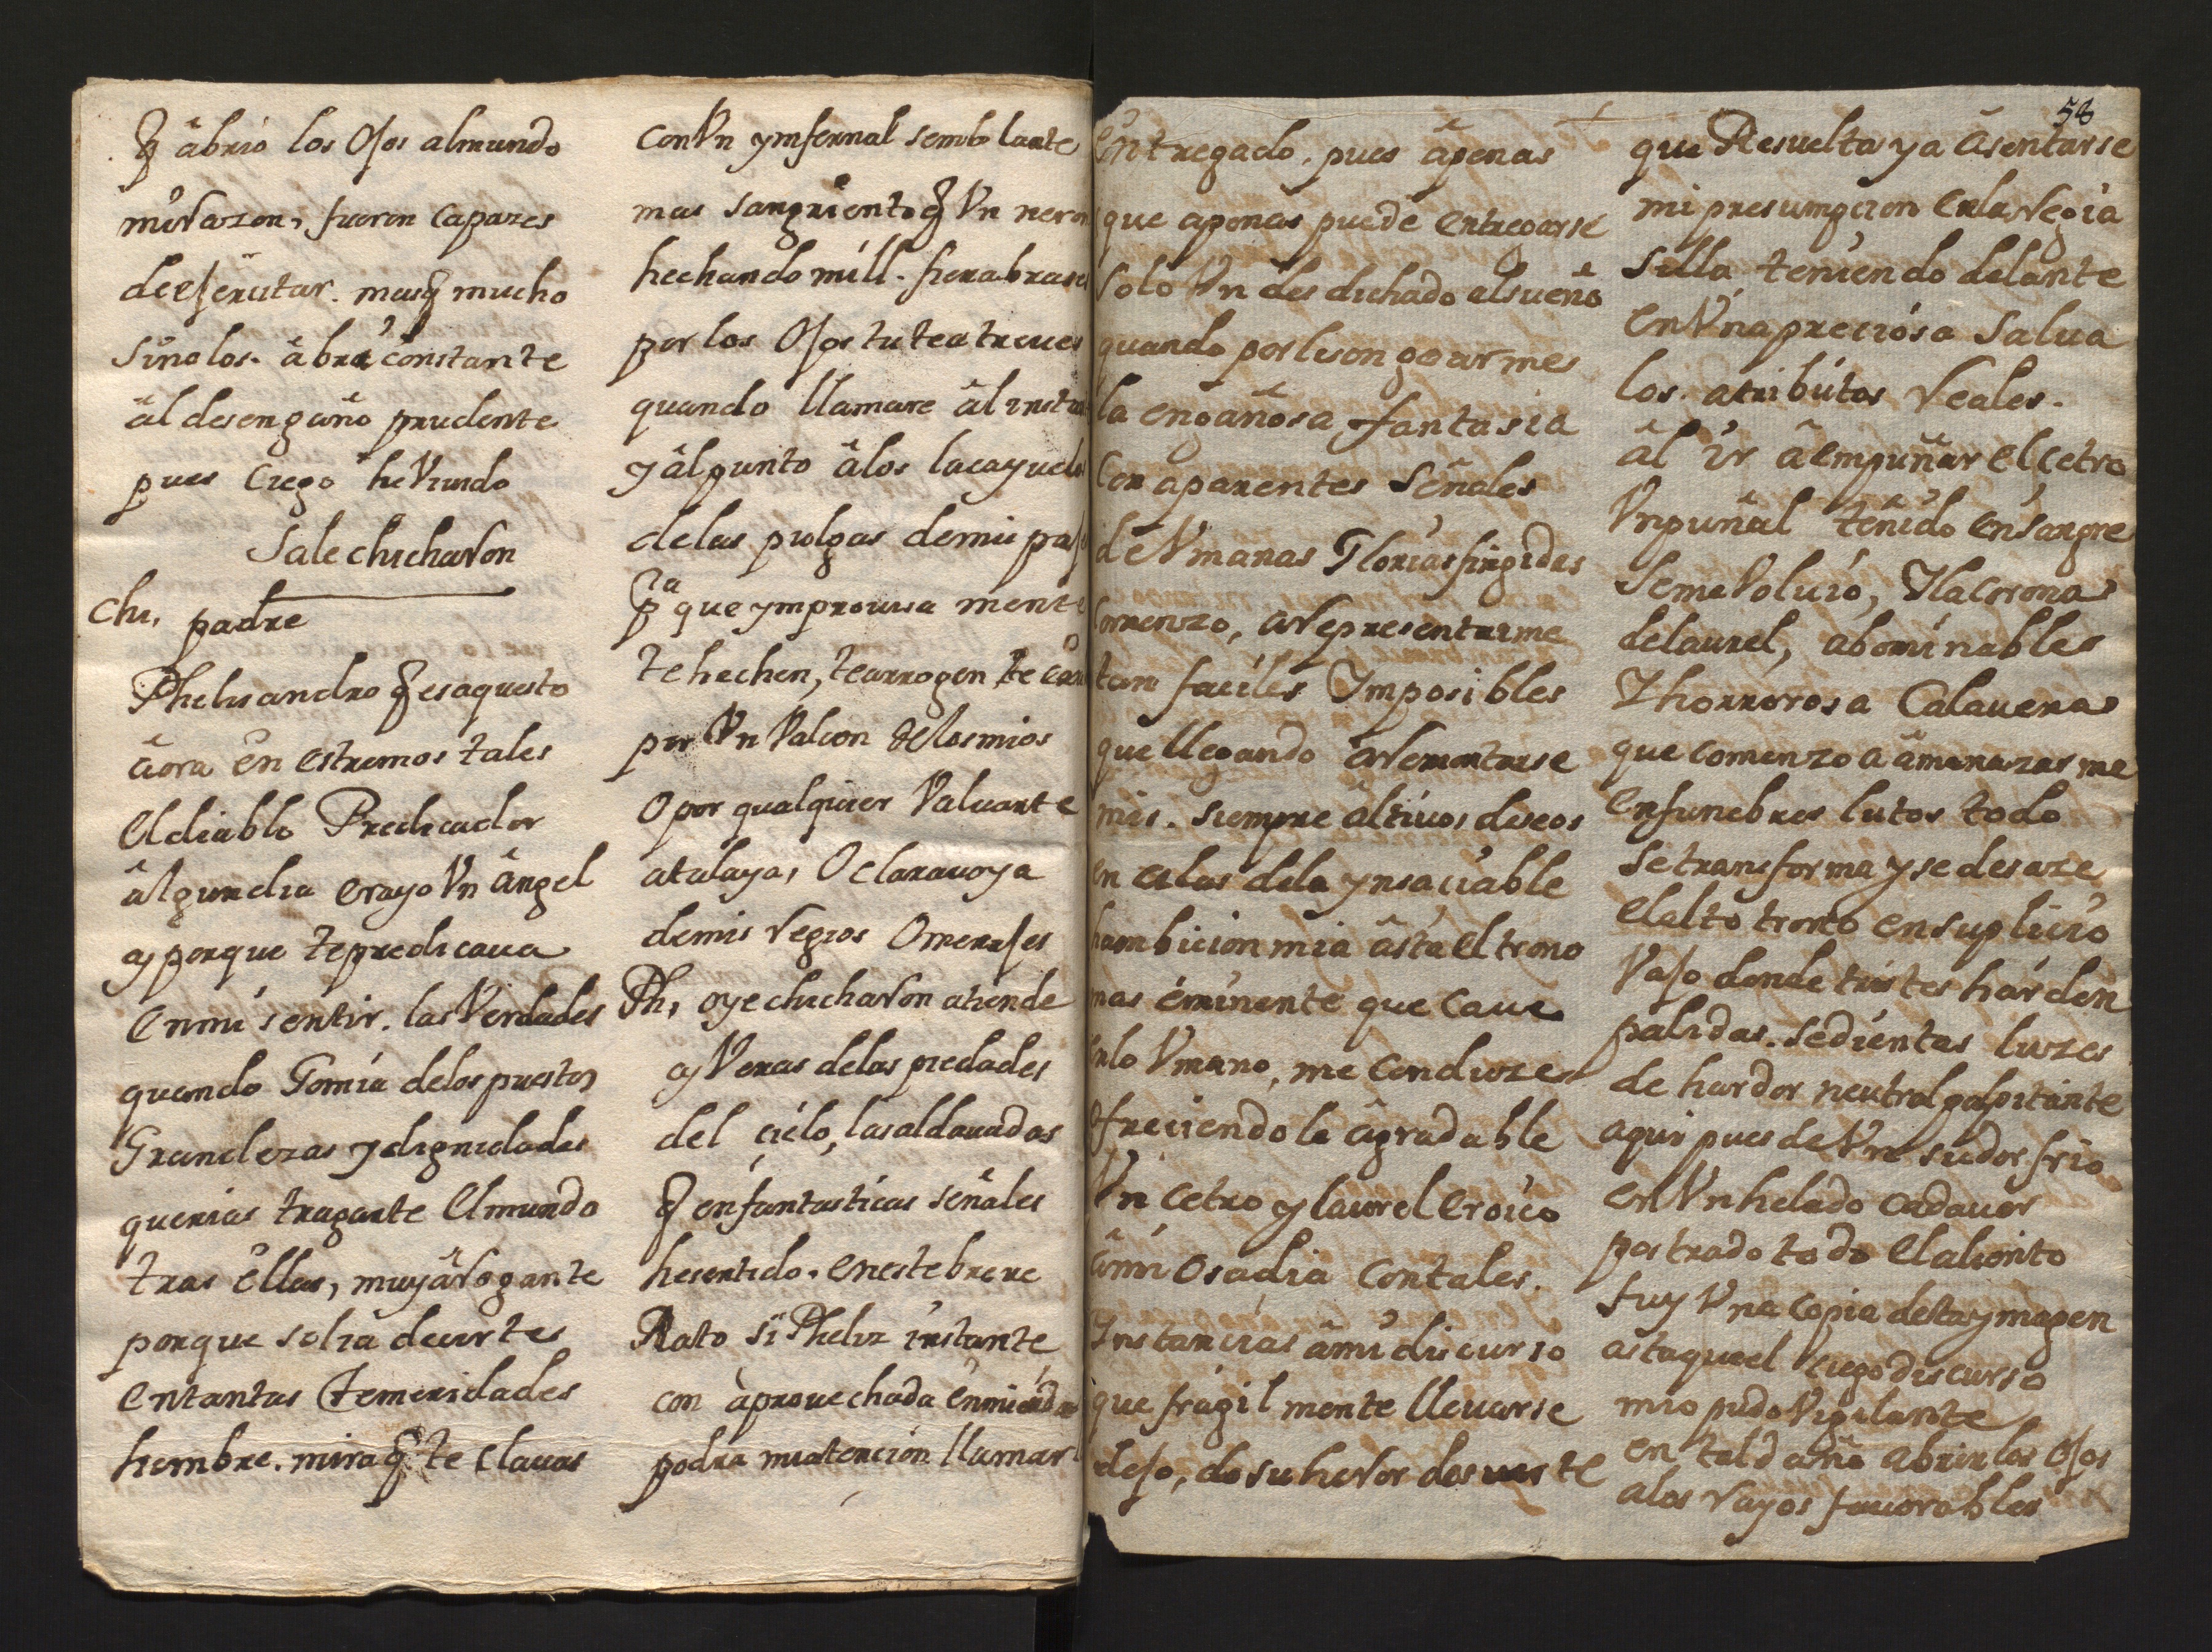 q̃ âbrio los Ojos almundo
miRazon, fueron capazes
deejecutar. masq̃ mucho
Sinolos. âbra constante
âl desengaño prudente
pues Ciego he Viuido
Sale chicharon
Chi, padre
Phelisandro q̃ esaquesto
âora en estremos tales
Eldiablo Predicador
âlgundia erayo Vn Ângel
y porque tepredicaua
Enmi sentir. las Verdades
quando Gomia delospuestos
Grandezas y dignidades
querias tragarte Elmundo
tras Ellas, muyâRogante
porque solia decirtes
entantas Temeridades
hombre. mira q̃ te clauas
ConVn ynfernal semblante
mas sangriento q̃ Vn neron
hechando mill. fierabrases
por los Ojos tu teatreues
quando llamare âl instan
y âlpunto âlos lacayuelos
delas pulgas demis paj
pª que ymprouisa mente
te hechen, tearrogen, te
por Vn Valcon de losmios
O por qualquier Valuarte
atalaya, O clarauoya
demis Regios Omenajes
Ph, oye chicharon atiende
y Veras delas piedades
del çielo, lasaldauadas
q̃ enfantasticas señales
hesentido. enestebreue
Rato si Pheliz instante
con aprouechada Enmienda
podra miatencion llamar
58
Entregado, pues âpenas
que apenas puede entregarse
Solo Vn des dichado alsueño
quando porlisongearmes
la engañosa fantasia
Con aparentes Señales
deVmanas Gloriasfingidas
Comenzo, aRepresentarme
tan faciles Ymposibles
que llegando aRemontarse
mis. siempre altiuos deseos
en alas dela ynsaciable
hambicion mia âsta el trono
mas eminente que Caue
enlo Vmano, me Conduze
Ofreciendo le âgradable
Vn Cetro y laurel Eroico
âmi Osadia Contales.
Instancias âmi discurso
que fragil mente lleuarse
dejo, do su heRor des
que Resuelta ya Âsentarse
mi presumpcion enlaRegia
Silla, teniendo delante
enVnapreciosa Salua
los. atributos Reales.
âl ir âempuñar elçetro
Vnpuñal teñido ensangre
SemeVoluio, Ylacorona
delaurel, abominables
Yhorrorosa Calauera
que comenzo a âmenazarme
enfunebres lutos todo
Setransforma y se desaze
Elalto trono ensuplicio
Vajo donde tristes hárden
palidas. Sedientas luzes
de hardor neutral palpitante
aqui pues de Vn sudor frio
enVnhelado cadauer
postrado todo Elaliento
fuy Vna Copia desta ymagen
astaqueel ciego discurso
mio pudo Vigilante
en tal daño abrir los Ojos
alos Rayos fauorables